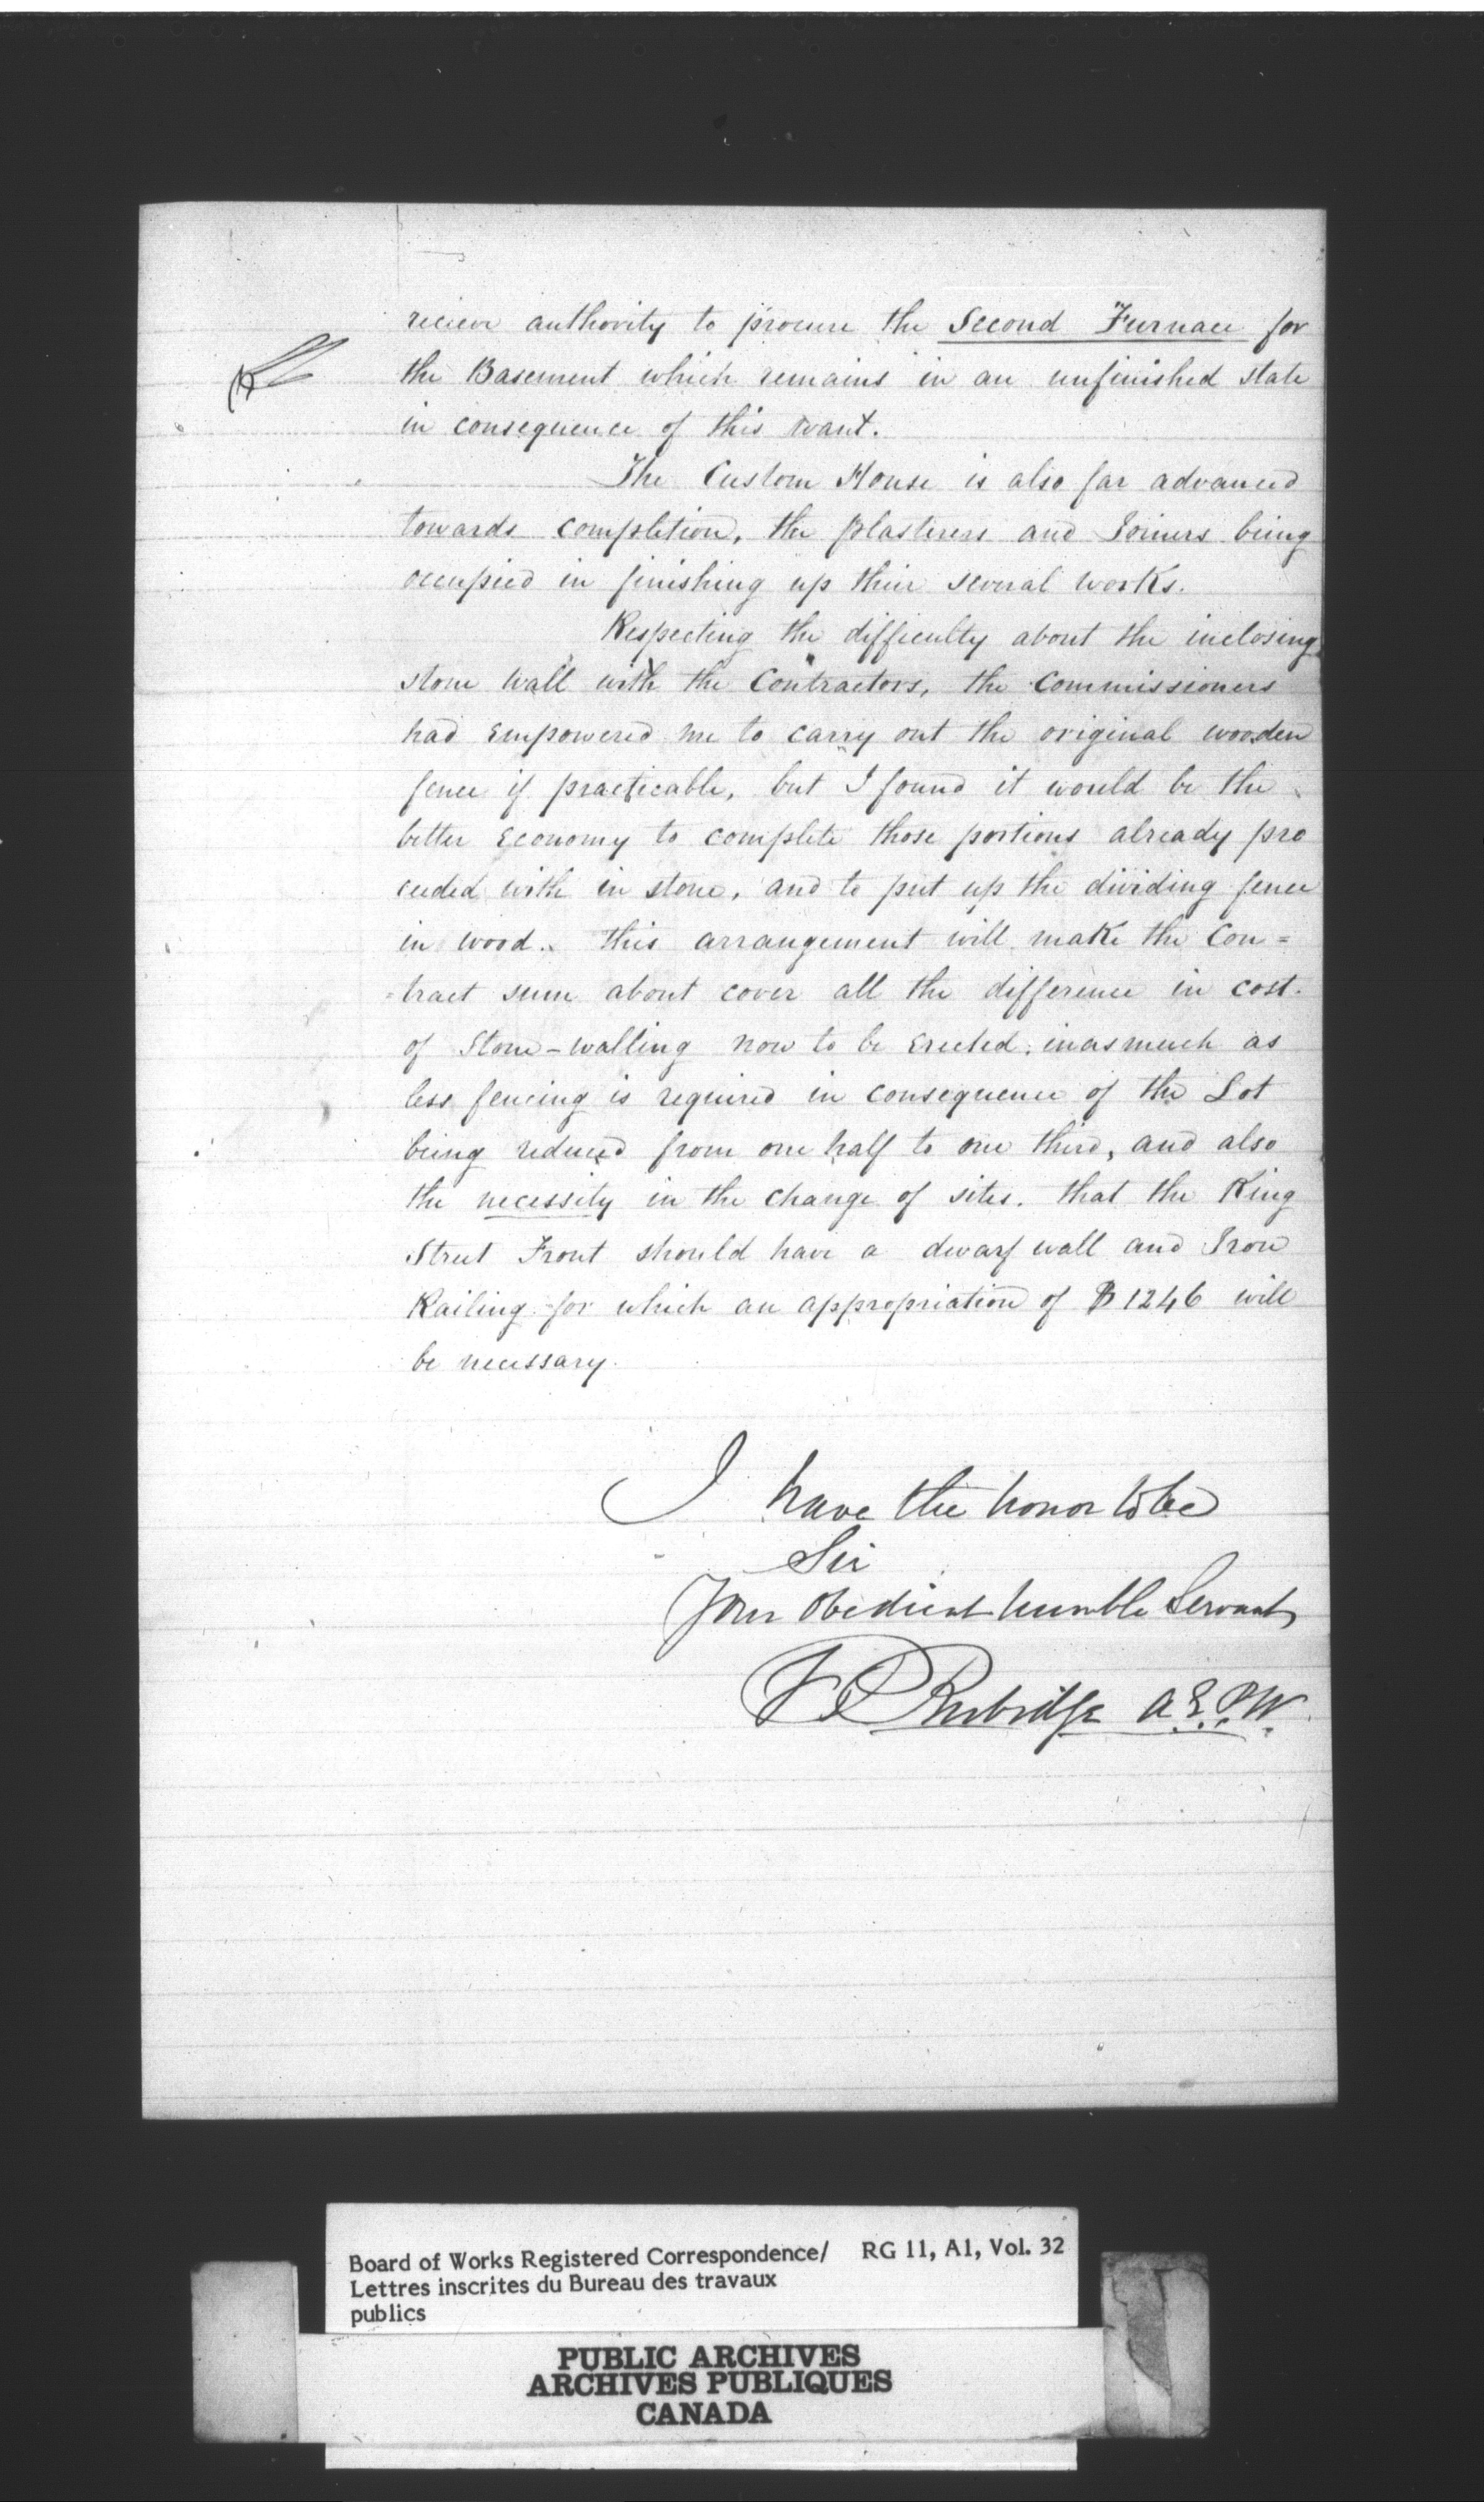 recieve authority to procure the Second Furnace for
the Basement which remains in an unfinished state
in consequence of this want.
The Custom House is also far advanced
towards completion, the plasterers and Joiners being
occupied in finishing up their several works.
Respecting the difficulty about the inclosing
stone wall with the Contractors, the Commissioners
had empowered me to carry out the original wooden
fence if practicable, but I found it would be the
better Economy to complete those portions already pro
ceeded with in stone, and to put up the dividing fence
in wood. This arrangement will make the Con=
=tract sum about cover all the difference in cost
of Stone-walling now to be Erected; inasmuch as
less fencing is required in consequence of the Lot
being reduced from one half to one third, and also
the necessity in the change of sites. that the King
Street Front should have a dwarf wall and Iron
Railing for which an appropriation of $1246 will
be necessary.
I have the honor to be
Sir
Your obedient humble Servant
F P Rubidge A.E.P.W.
Board of Works Registered Correspondence/ RG 11, A1, Vol. 32
Lettres inscrites du Bureau des travaux
publics
PUBLIC ARCHIVES
ARCHIVES PUBLIQUES
CANADA